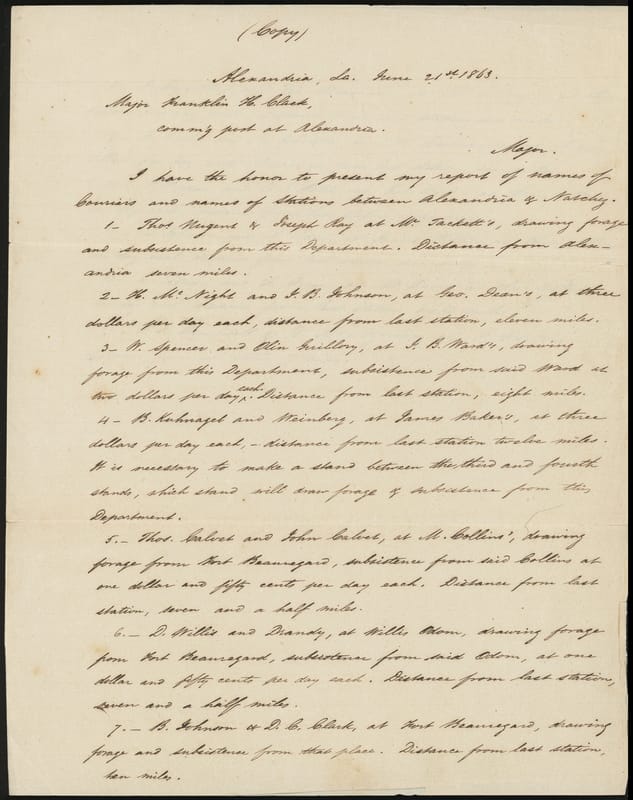 (Copy)
Alexandria, La. June 21st 1863.
Major Franklin H. Clack,
comm'g post at Alexandria.
Major.
I have the honor to present my report of names of
Couriers and names of Stations between Alexandria & Natchez.
1- Thos Nugent & Joseph Ray at Mr. Tackett's, drawing forage
and subsistence from this Department. Distance from Alex-
andria seven miles.
2- H. Mc Night and J. B. Johnson, at Geo. Dean's, at three
dollars per day each, distance from last station, eleven miles.
3- W. Spencer and Olin Guillory, at J. B. Ward's, drawing
forage from this Department, subsistence from said Ward at
two dollars per day each. Distance from last station, eight miles.
4- B. Kuhnagel and Weinberg, at James Baker's, at three
dollars per day each, - distance from last station twelve miles.
It is necessary to make a stand between the third and fourth
stands, which stand will draw forage & subsistence from this
Department.
5.- Thos. Calvet and John Calvet, at M. Collins', drawing
forage from Fort Beauregard, subsistence from said Collins at
one dollar and fifty cents per day each. Distance from last
station, seven and a half miles.
6.- D. Willis and Drandy, at Willis Odom, drawing forage
from Fort Beauregard, subsistence from said Odom, at one
dollar and fifty cents per day each. Distance from last station,
seven and a half miles.
7.- B. Johnson & D. C. Clark, at Fort Beauregard, drawing
forage and subsistence from that place. Distance from last station,
ten miles.